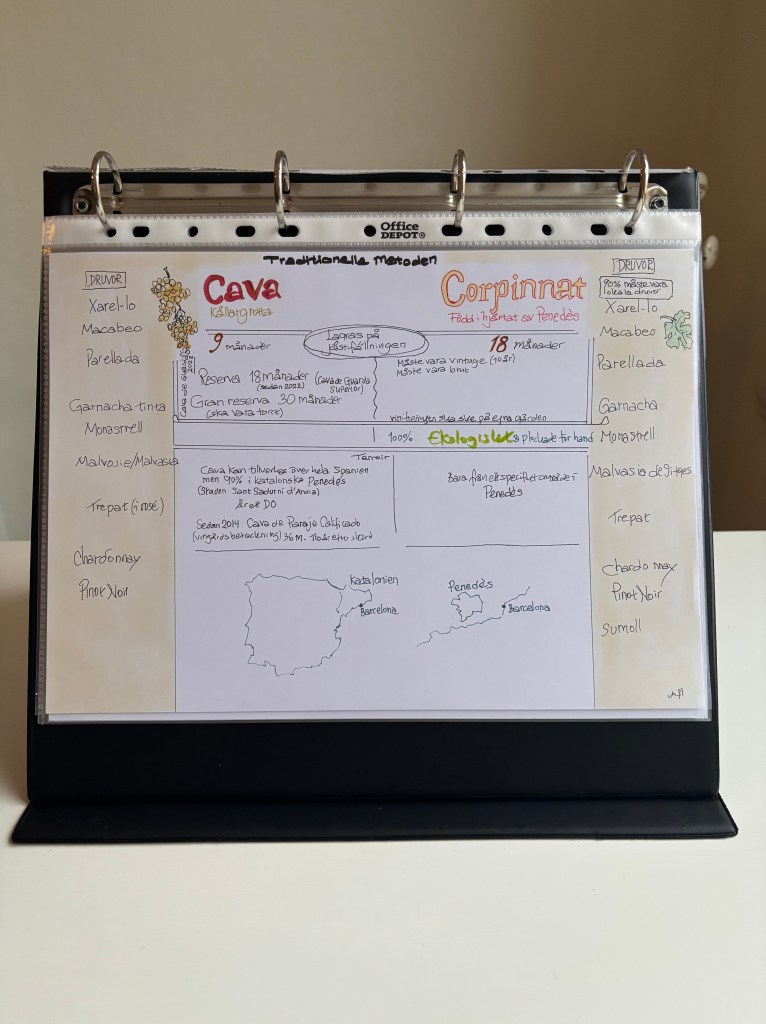 Office
DEPOT
Traditionella Metoden
DRUVOR
Xarel-lo
Macabeo
Parellada
Garnacha tinta
Monastrell
Malvosie/Malvasia
Trepat (i rosé)
Chardonnay
Pinot Noir
Cava
Källargrotta
Corpinnat
Född i hjärtat av Penedès
Lagras på
jästfällningen
9 månader
18 månader
Cava de Guarda
Reserva 18 månader (Cava de Guarda
Superior)
(sedan 2023)
Gran reserva 30 månader
(ska vara torrt)
Måste vara vintage (10år)
Måste vara brut
vinifieringen ska ske på egna gården
100% Ekologiskt & plockade för hand
Terroir
Cava kan tillverkas över hela Spanien
men 90% i katalonska Penedès
(Staden Sant Sadurní d'Anoia)
Är ett DO
Sedan 2014 Cava de Paraje Calificado
(vingårdsbeteckning) 36 m.
Bara från ett specifikt område i
Penedès
Katalonien
Barcelona
Penedès
Barcelona
DRUVOR
90% måste vara
lokala druvor
Xarel-lo
Macabeo
Parellada
Garnacha
Monastrell
Malvasia de Sitges
Trepat
Chardonnay
Pinot Noir
Sumoll